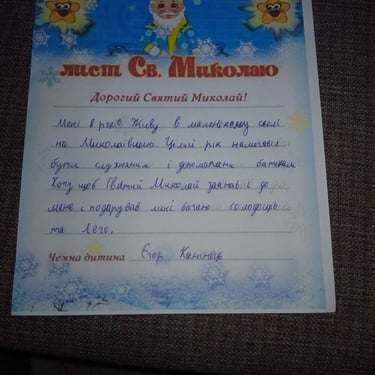 лист Св. Миколаю
Дорогий Святий Миколай!
Мені 8 років Живу в маленькому селі
на Миколаївщині Цілий рік намагався
бути слухняним і допомагати батькам
Хочу щоб Святий Миколай завітав і до
мене і подарував мені багато солодощів
та Лего.
Чемна дитина Єгор